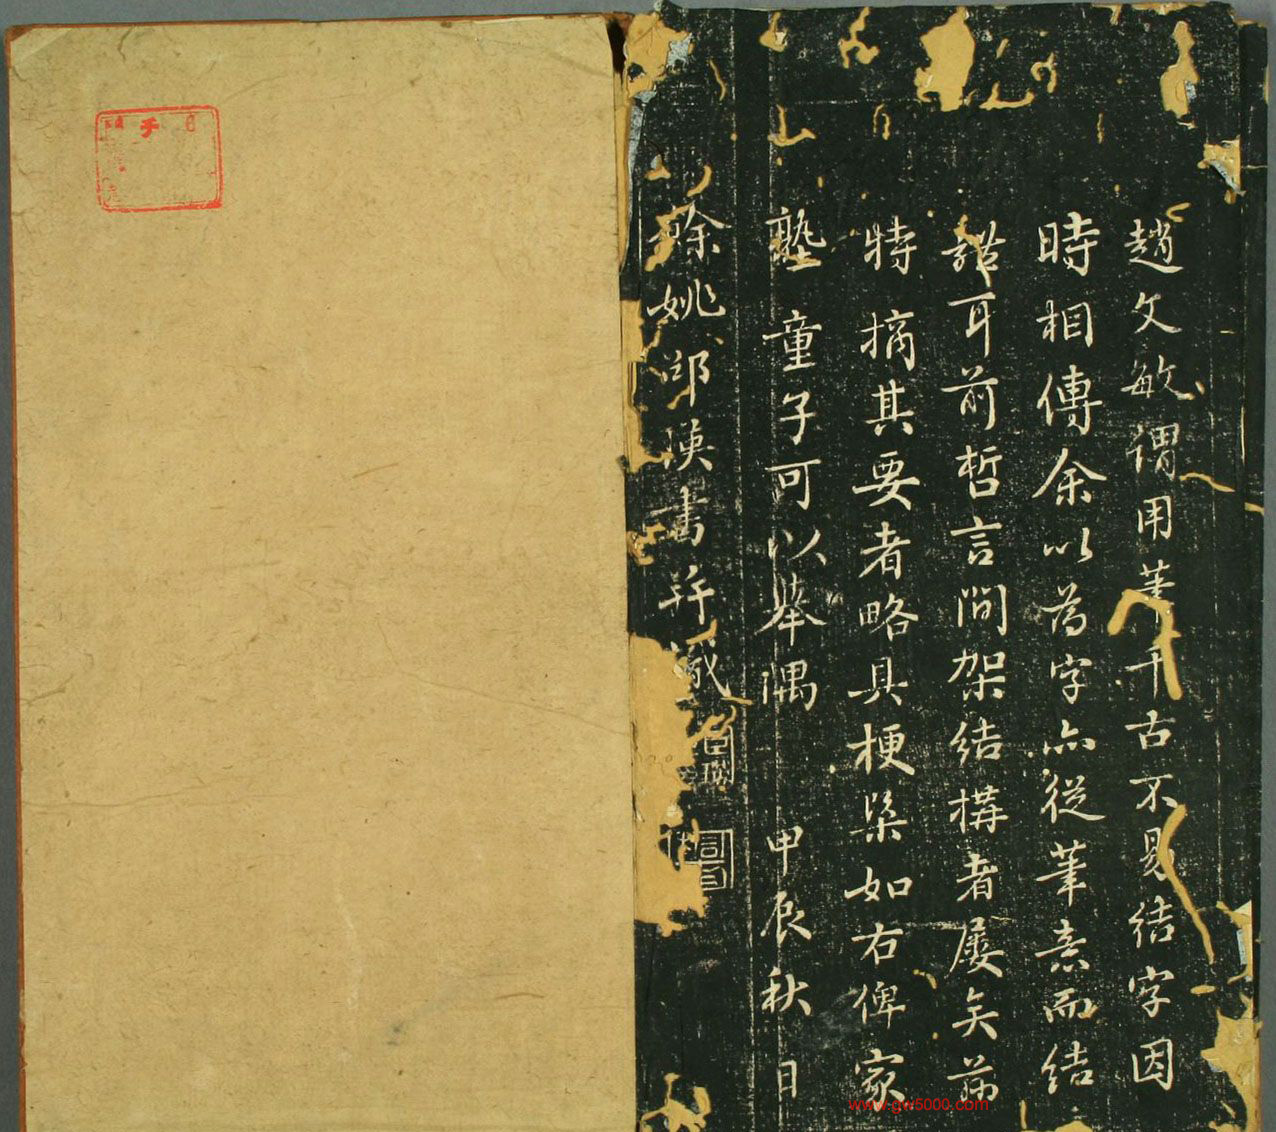 趙文敏謂用筆千古不易結字因
時相傳余以爲字亦從筆意而結
耳前哲言間架結構者屢矣茲
特摘其要者略具梗槩如右俾家
塾童子可以舉隅 甲辰秋日
餘姚邵瑛書并識
www.gw5000.com